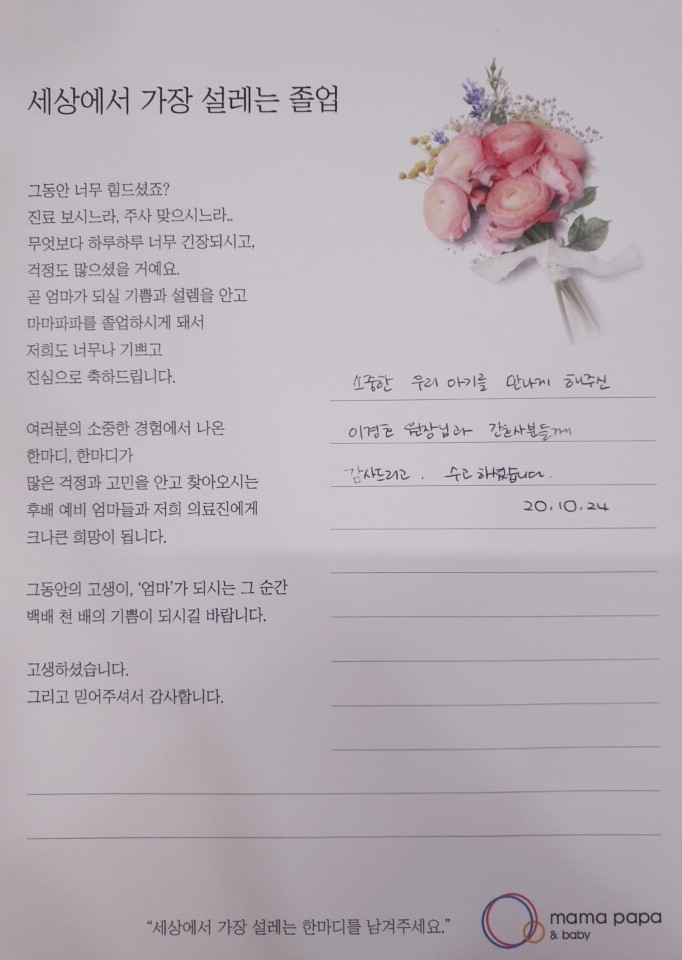 세상에서 가장 설레는 졸업
그동안 너무 힘드셨죠?
진료 보시느라, 주사 맞으시느라..
무엇보다 하루하루 너무 긴장되시고,
걱정도 많으셨을 거예요.
곧 엄마가 되실 기쁨과 설렘을 안고
마마파파를 졸업하시게 돼서
저희도 너무나 기쁘고
진심으로 축하드립니다.
여러분의 소중한 경험에서 나온
한마디, 한마디가
많은 걱정과 고민을 안고 찾아오시는
후배 예비 엄마들과 저희 의료진에게
크나큰 희망이 됩니다.
그동안의 고생이, ‘엄마’가 되시는 그 순간
백배 천 배의 기쁨이 되시길 바랍니다.
고생하셨습니다.
그리고 믿어주셔서 감사합니다.
소중한 우리 아기를 만나게 해주신
원장님과 간호사분들께
감사드리고. 수고하셨습니다.
20.10.24
“세상에서 가장 설레는 한마디를 남겨주세요.”
mama papa
& baby